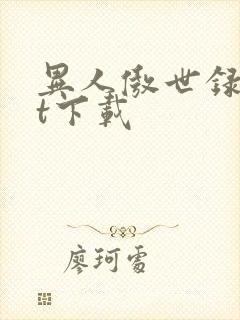 異人傲世録
t下載
廖珂雪